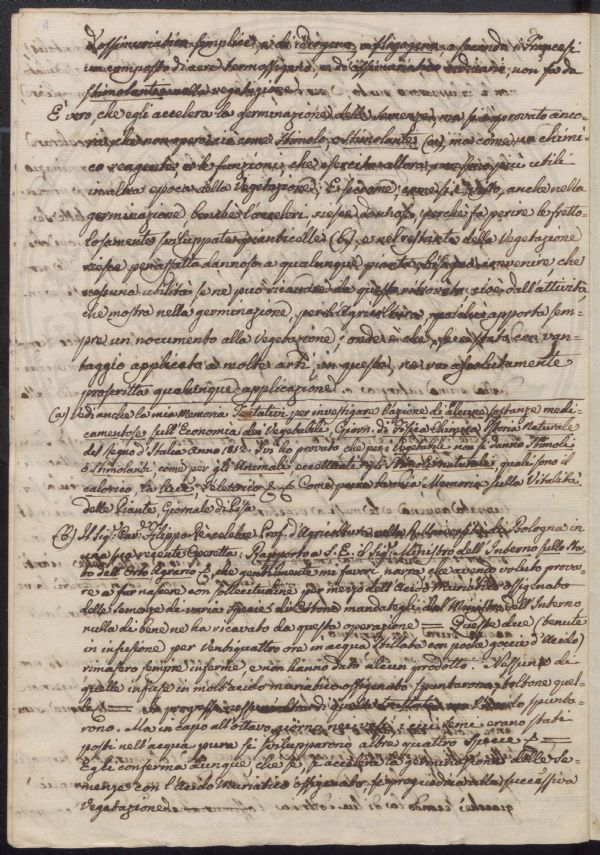 L'ossimuriatico semplice, o di idrogeno, o fligogeno, a seconda i Francesi
un composto di aere termossigeno, e di ossimuriatico radicale, non fa da
stimolante nella vegetazione.
È vero, che egli accelera la germinazione delle semenze, ma si è provato anco-
ra, che non opera già come Stimolo, o Stimolante (a), ma come un chimi-
co reagente, e le funzioni, che esercita allora, non sono più utili
in altra epoca della Vegetazione; Eziandio, come si è visto, anche nella
germinazione benché l'acceleri, riesce dannoso, perché fa perire le fretto-
losamente sviluppate pianticelle (b), e nel restante della Vegetazione
riesce per affatto dannoso a qualunque pianta, bisogna convenire, che
nessuna utilità se ne può ricavare da questa cioè dall'attività,
che mostra nella germinazione, per l'Agricoltura, poiché apporta sem-
pre un nocumento alla Vegetazione: onde è che, se è stato con van-
taggio applicato a molte arti, in questa, ne va assolutamente
proscritta qualunque applicazione.
(a) Vedi anche la mia Memoria Tentativi per investigare l'azione di alcune sostanze medi-
camentose sull'Economia dei Vegetabili, Giorn. di Fisica Chimica Storia Naturale
del Regno d'Italia Anno 1812. In ho provato che pei Vegetabili non si danno Stimoli
o Stimolanti, come per gli Animali, eccettuati gli Stimoli naturali, quali sono il
calorico, la luce, l'elettrico &c. Come pure Memoria sulla Vitalità
delle Piante, Giornale di Pisa.
(b) Il Sig. Cav. Filippo Re celebre Prof. d'Agricoltura nella Università di Bologna in
una sua regente Operetta: Rapporto a S. E. il Sig. Ministro dell'Interno sullo Sta-
to dell'Orto Agrario &, che gentilmente mi favorì, narra che avendo voluto prova-
re a far nascere con sollecitudine per mezzo dell'Acido Muriatico ossigenato
delle semenze di varie Specie di Cotone mandategli dal Ministro dell'Interno,
nulla di bene ne ha ricavato da questa operazione = Queste dice (tenute
in infusione per ventiquattro ore in acqua stillata con poche goccie d'Acido)
rimasero sempre inferme, e non hanno dato alcun prodotto. Nessuno di
quelle infuse in molt'acido muriatico ossigenato spuntarono, toltone quel-
le &= In progresso di quelle spunta-
rono. Ma in capo all'ottavo giorno nei vasi, i cui semi erano stati
posti nell'acqua pura si svilupparono altre quattro Specie &=
Egli conferma dunque che se si accelera la germinazione delle se-
menze con l'Acido Muriatico ossigenato, si pregiudica alla successiva
Vegetazione.